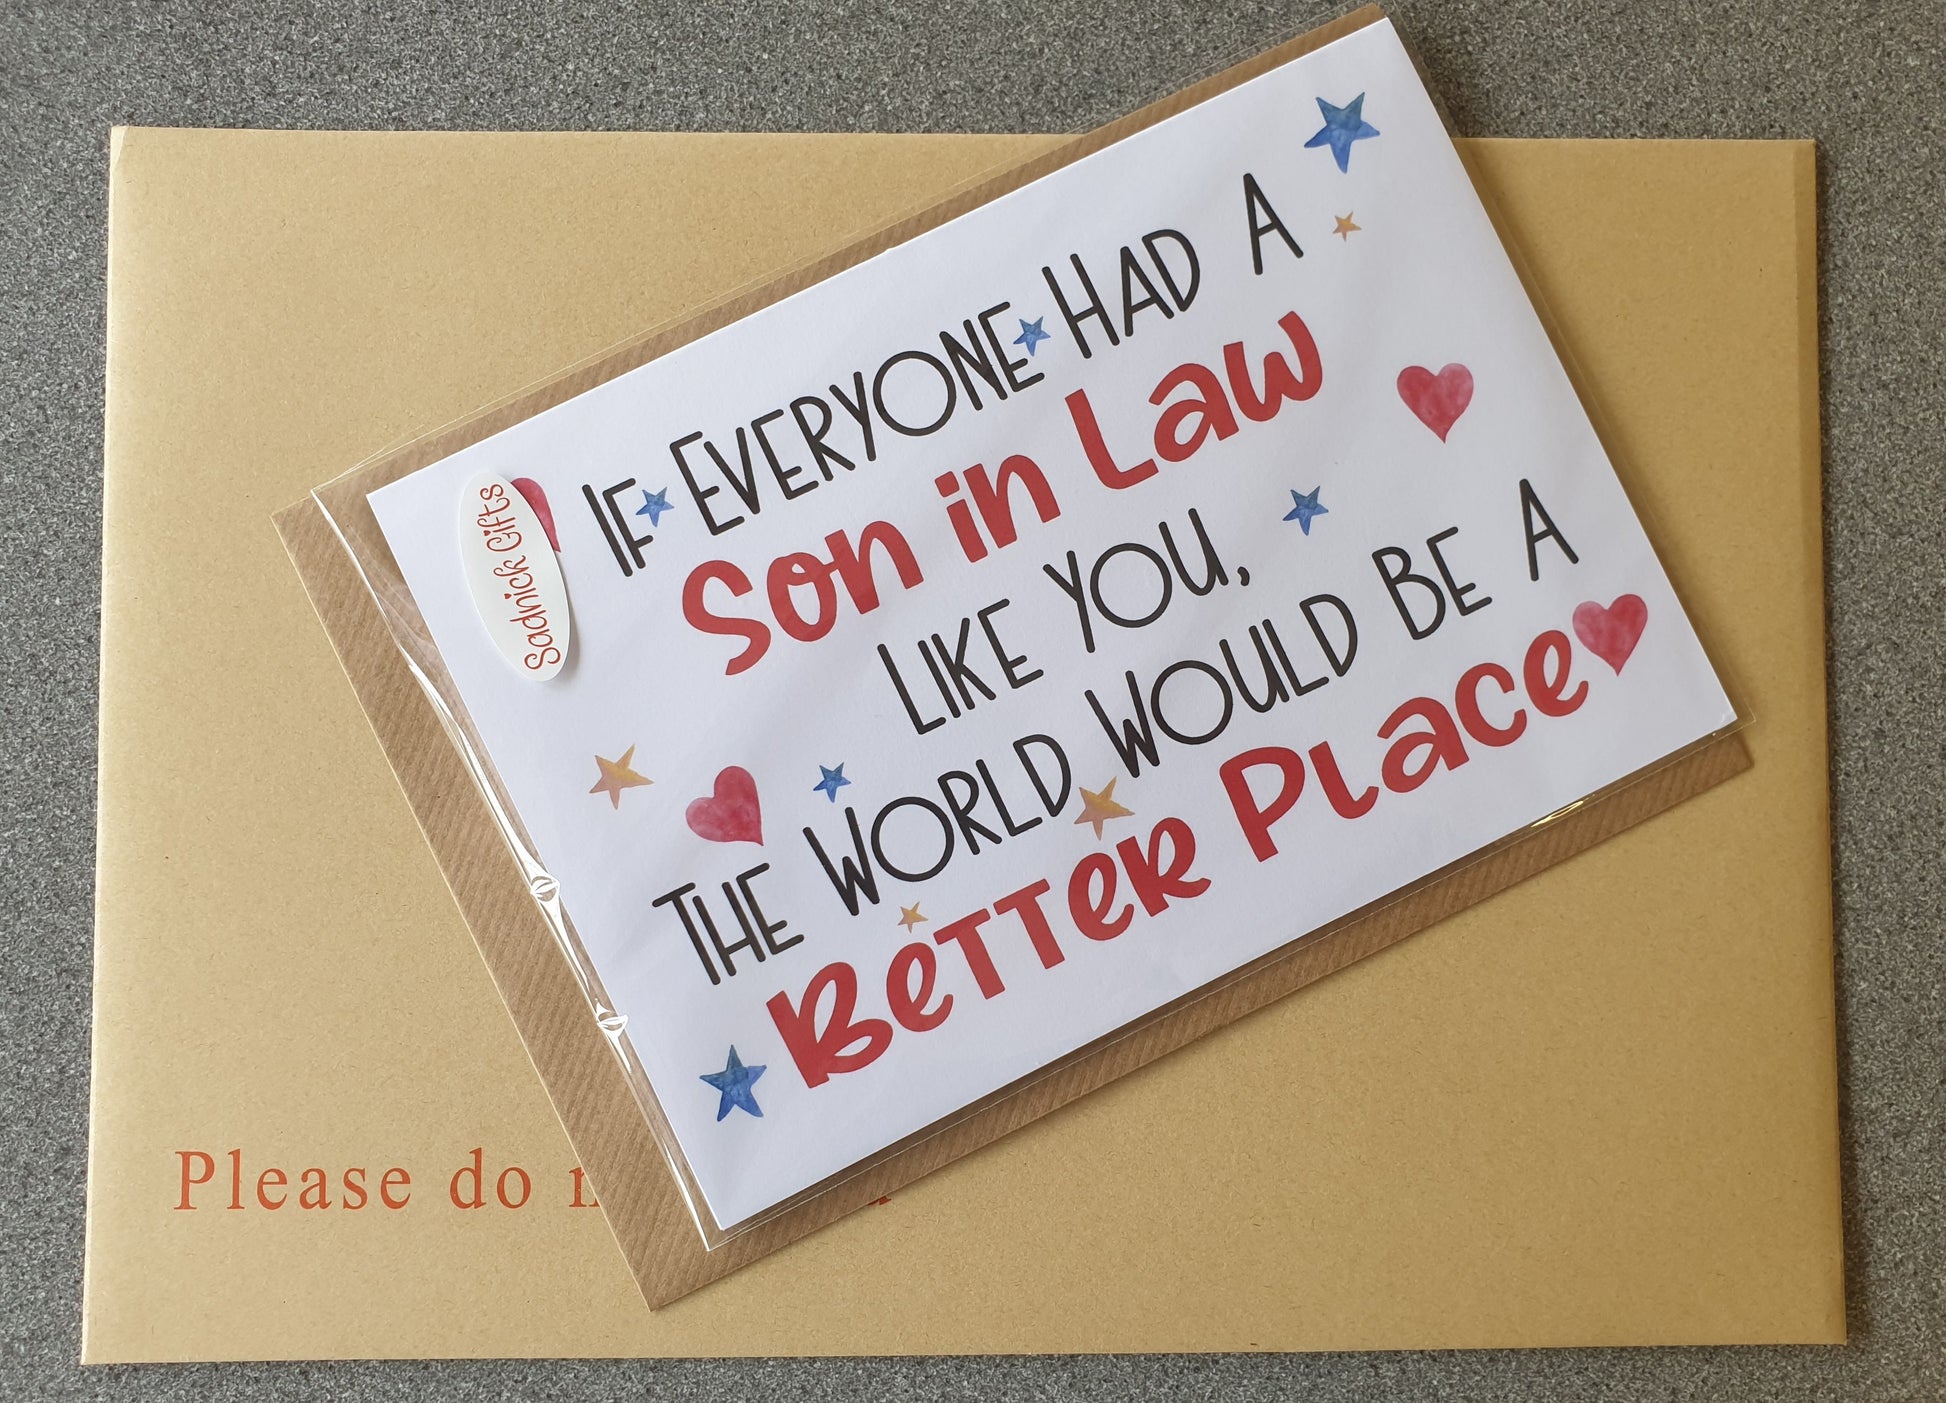 IF EVERYONE HAD A
Son in Law
LIKE YOU,
THE WORLD WOULD BE A
Better Place
Sadnick Gifts
Please do